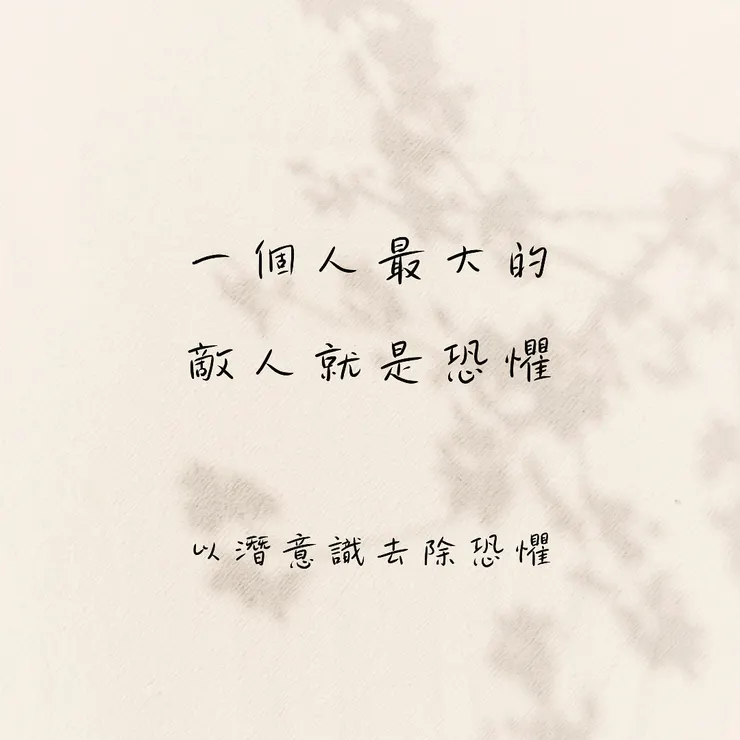 一個人最大的
敵人就是恐懼
以潛意識去除恐懼